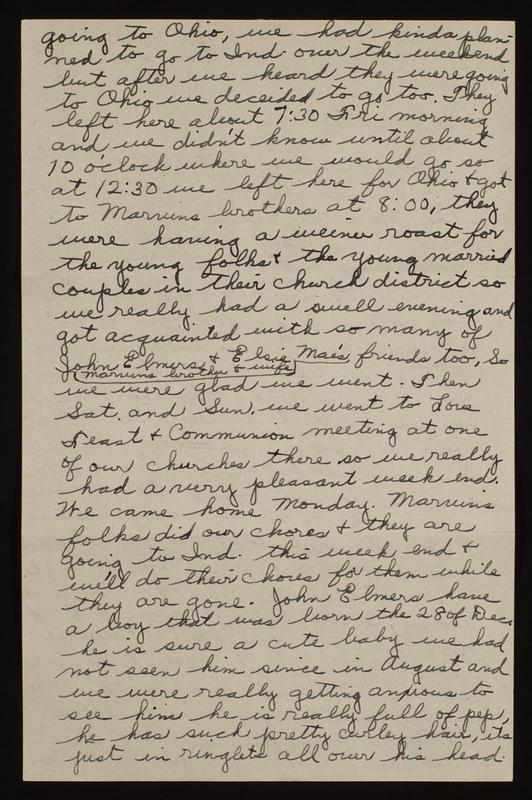 going to Ohio, we had kinda plan-
ned to go to Ind. over the weekend
but after we heard they were going
to Ohio we deceided to go too. They
left here about 7:30 Fri morning
and we didn't know until about
10 o'clock where we would go so
at 12:30 we left here for Ohio & got
to Marvins brothers at 8:00, they
were having a weiner roast for
the young folks & the young married
couples in their church district so
we really had a swell evening and
got acquainted with so many of
John Elmers & Elsie Mae's friends too, So
(Marvins brother & wife)
we were glad we went. Then
Sat. and Sun. we went to Love
Feast & Communion meeting at one
of our churches there so we really
had a very pleasant week end.
We came home Monday. Marvins
folks did our chores & they are
going to Ind. this week end &
we'll do their chores for them while
they are gone. John Elmers have
a boy that was born the 28 of Dec.
he is sure a cute baby we had
not seen him since in August and
we were really getting anxious to
see him he is really full of pep,
he has such pretty curley hair, its
just in ringlets all over his head.